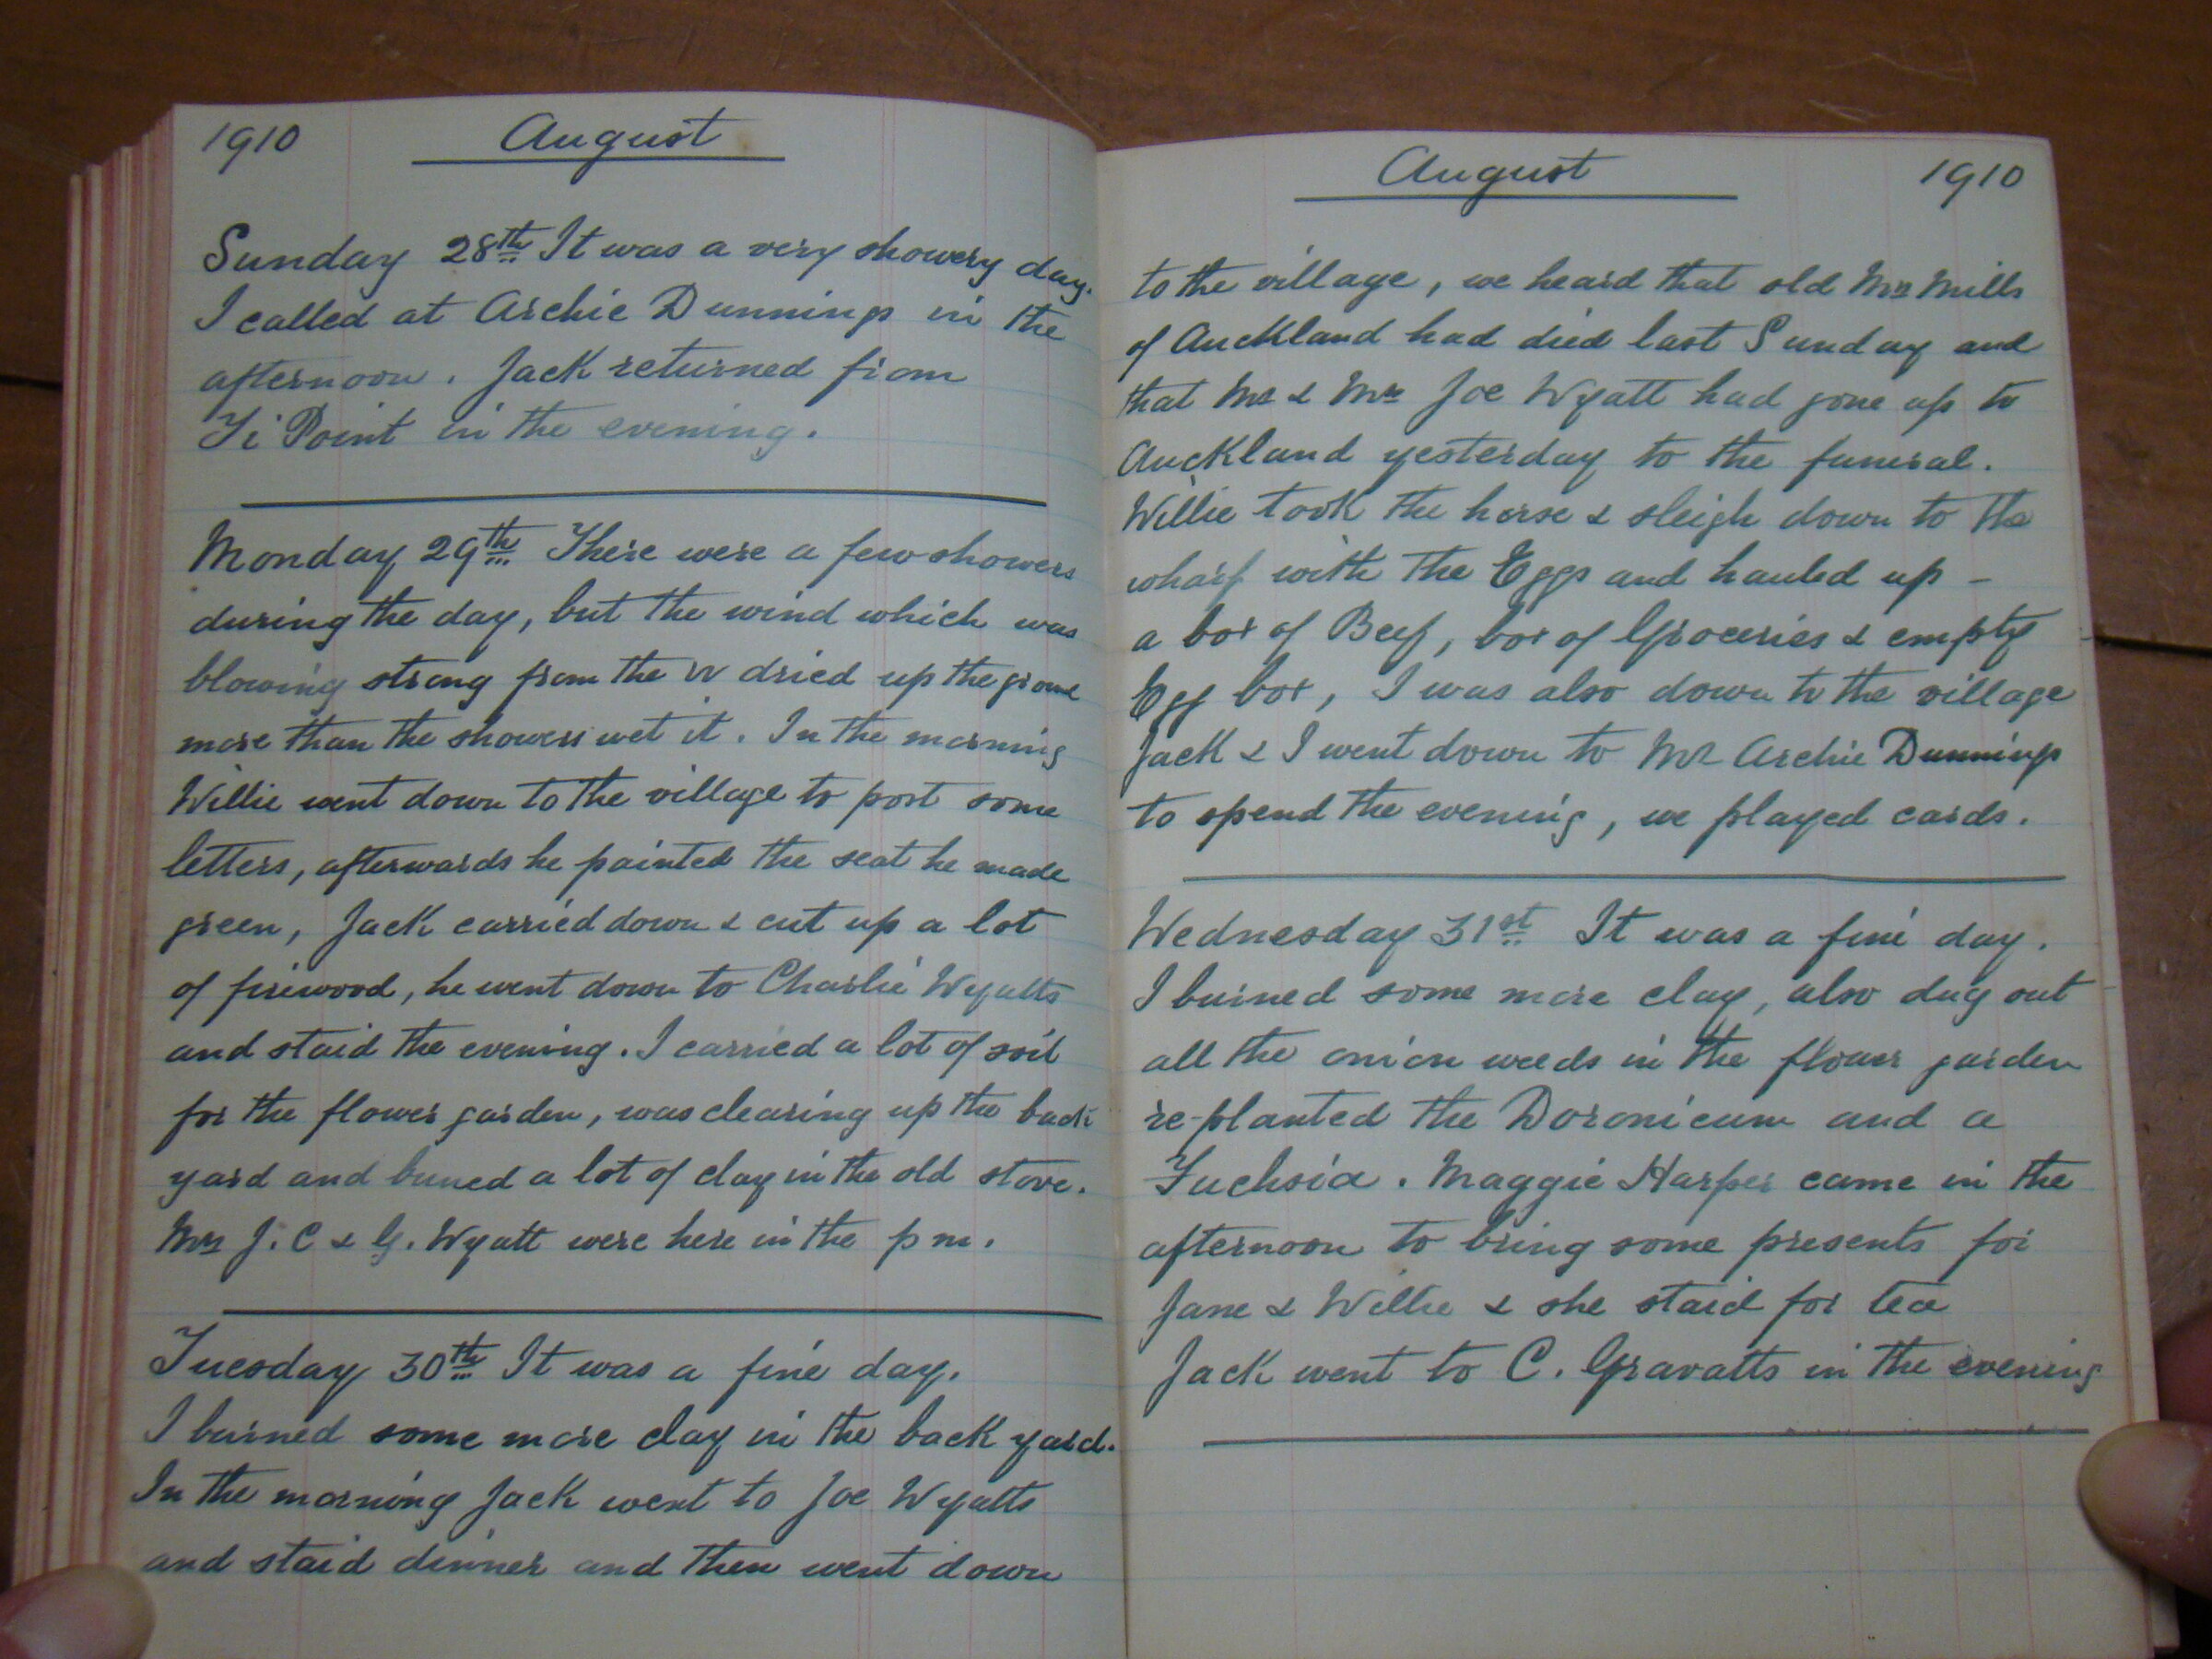 1910 August
Sunday 28th It was a very showery day.
I called at Archie Dunnings in the
afternoon. Jack returned from
Ti Point in the evening.
Monday 29th There were a few showers
during the day, but the wind which was
blowing strong from the W dried up the ground
more than the showers wet it. In the morning
Willie went down to the village to post some
letters, afterwards he painted the seat he made
green, Jack carried down & cut up a lot
of firewood, he went down to Charlie Wyatts
and staid the evening. I carried a lot of soil
for the flower garden, was clearing up the back
yard and buned a lot of clay in the old stove.
Mrs J. C & G. Wyatt were here in the p m.
Tuesday 30th It was a fine day.
I burned some more clay in the back yard.
In the morning Jack went to Joe Wyatts
and staid dinner and then went down
August 1910
to the village, we heard that old Mrs Mills
of Auckland had died last Sunday and
that Mr & Mrs Joe Wyatt had gone up to
Auckland yesterday to the funeral.
Willie took the horse & sleigh down to the
wharf with the Eggs and hauled up -
a box of Beef, box of Groceries & empty
Egg box, I was also down to the village
Jack & I went down to Mr Archie Dunnings
to spend the evening, we played cards.
Wednesday 31st It was a fine day.
I burned some more clay, also dug out
all the onion weeds in the flower garden
re-planted the Doronicum and a
Fuchsia. Maggie Harper came in the
afternoon to bring some presents for
Jane & Willie & she staid for tea
Jack went to C. Gravatts in the evening